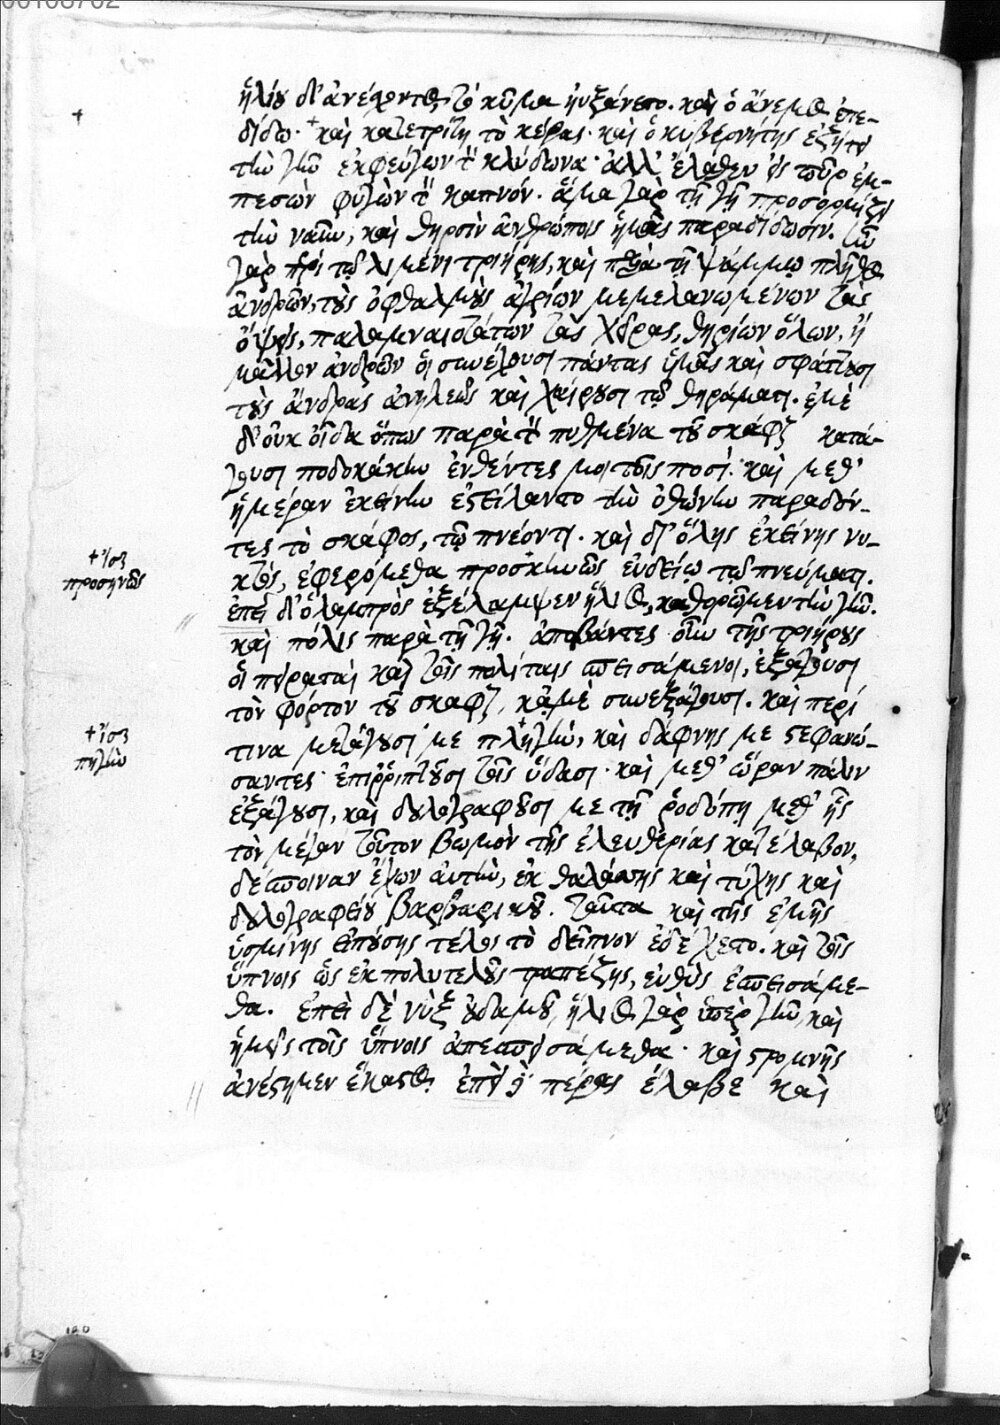 ἡλίου δ' ἀνέχοντος τὸ κῦμα ηὐξάνετο. καὶ ὁ ἄνεμος ἐπε-
δίδω. καὶ κατετρίβη τὸ κέρας. καὶ ὁ κυβερνήτης ἐζήτει
τὴν γῆν ἐκφεύγων τὸν κλύδωνα. ἀλλ' ἔλαθεν εἰς πῦρ ἐμ-
πεσὼν φυγὼν τὸν καπνόν. ἅμα γὰρ τῇ γῇ προσορμίζει
τὴν ναῦν, καὶ θηρσὶν ἀνθρώποις ἡμᾶς παραδίδωσιν. ἦν
γὰρ περὶ τῷ λιμένι τριήρης, καὶ παρὰ τῇ ψάμμῳ πλῆθος
ἀνδρῶν, τοὺς ὀφθαλμοὺς ἀγρίων μεμελανωμένων τὰς
ὄψεις, παλαμναιοτάτων τὰς χεῖρας, θηρίων ὅλων, ἢ
μᾶλλον ἀνδρῶν οἳ συνέχουσι πάντας ἡμᾶς καὶ σφάττουσι
τοὺς ἄνδρας ἀνηλεῶς καὶ χαίρουσι τῷ θηράματι. ἐμὲ
δ' οὐκ οἶδα ὅπως παρὰ τὸν πυθμένα τοῦ σκάφους κατά-
γουσι ποδοκάκην ἐνθέντες μοι τοῖς ποσί. καὶ μεθ'
ἡμέραν ἐκείνην ἐστείλαντο τὴν ὀθόνην παραδόν-
τες τὸ σκάφος, τῷ πνέοντι. καὶ δι' ὅλης ἐκείνης νυ-
κτὸς, ἐφερόμεθα προσκηνῶς ἐνδείῳ τῷ πνεύματι.
ἐπεὶ δ' ὁ λαμπρὸς ἐξέλαμψεν ἥλιος, καθορῶμεν τὴν γῆν.
καὶ πόλις παρὰ τῇ γῇ. ἀποβάντες οὖν τῆς τριήρους
οἱ πειραταὶ καὶ τοῖς πολίταις σπεισάμενοι, ἐξάγουσι
τὸν φόρτον τοῦ σκάφους, κἀμὲ συνεξάγουσι. καὶ περί
τινα μετάγουσί με πληγὴν, καὶ δάφνης με στεφανώ-
σαντες ἐπιρριπτοῦσι τοῖς ὕδασι. καὶ μεθ' ὥραν πάλιν
ἐξάγουσι, καὶ δουλογραφοῦσί με τῇ ῥοδόπῃ μεθ' ἧς
τὸν μέγαν τοῦτον βωμὸν τῆς ἐλευθερίας κατέλαβον,
δέσποιναν ἔχων αὐτὴν, ἐκ θαλάσσης καὶ τύχης καὶ
δουλογραφείου βαρβαρικοῦ. ταῦτα καὶ τῆς ἐμῆς
ὑσμίνης εἰπούσης τέλος τὸ δεῖπνον ἐδέχετο. καὶ τοῖς
ὕπνοις ὡς ἐκ πολυτελοῦς τραπέζης, εὐθὺς ἐσπεισάμε-
θα. ἐπεὶ δὲ νὺξ οὐδαμοῦ, ἥλιος γὰρ ὑπὲρ γῆν, καὶ
ἡμεῖς τοῖς ὕπνοις ἀπεσπεισάμεθα. καὶ στρωμνῆς
ἀνέστημεν ἕκαστος. ἐπεὶ δὲ πέρας ἔλαβε καὶ
+ ἴσως
προσηνῶς
+ ἴσως
πηγὴν